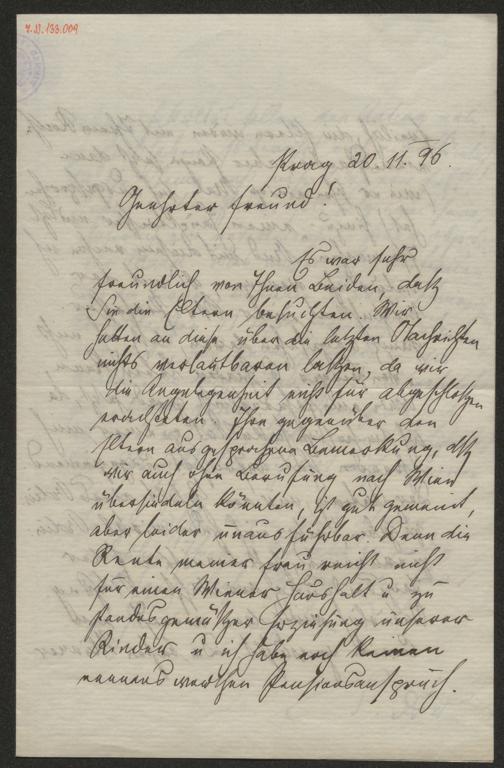 Y.N.133.009
Prag 20. 11. 96.
Geehrter Freund!
Es war sehr
freundlich von Ihnen Beiden, daß
Sie die Eltern besuchten. Wir
hatten an diese über die letzten Nachrichten
nichts verlautbaren lassen, da wir
die Angelegenheit nicht für abgeschlossen
erachteten. Ihre gegenüber den
Eltern ausgesprochene Bemerkung, daß
wir auch ohne Berufung nach Wien
übersiedeln könnten, ist gut gemeint,
aber leider unausführbar. Denn die
Rente meiner Frau reicht nicht
für einen Wiener Haushalt u. zu
standesgemäßer Erziehung unserer
Kinder u. ich habe noch keinen
nennenswerthen Pensionsanspruch.